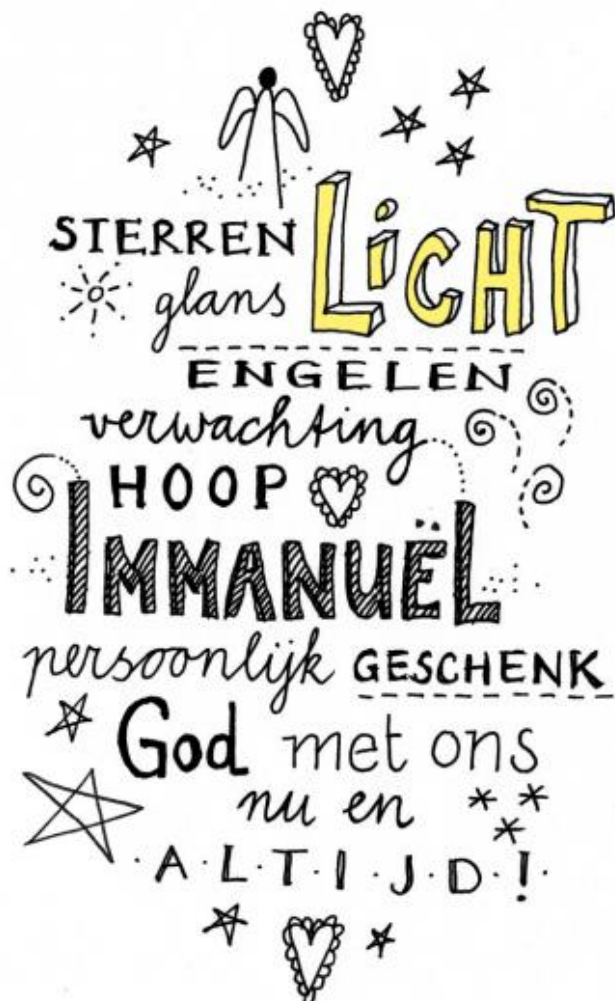 STERREN LiCHT
glans
ENGELEN
verwachting
HOOP
IMMANUËL
persoonlijk GESCHENK
God met ons
nu en
·A·L·T·I·J·D·!·